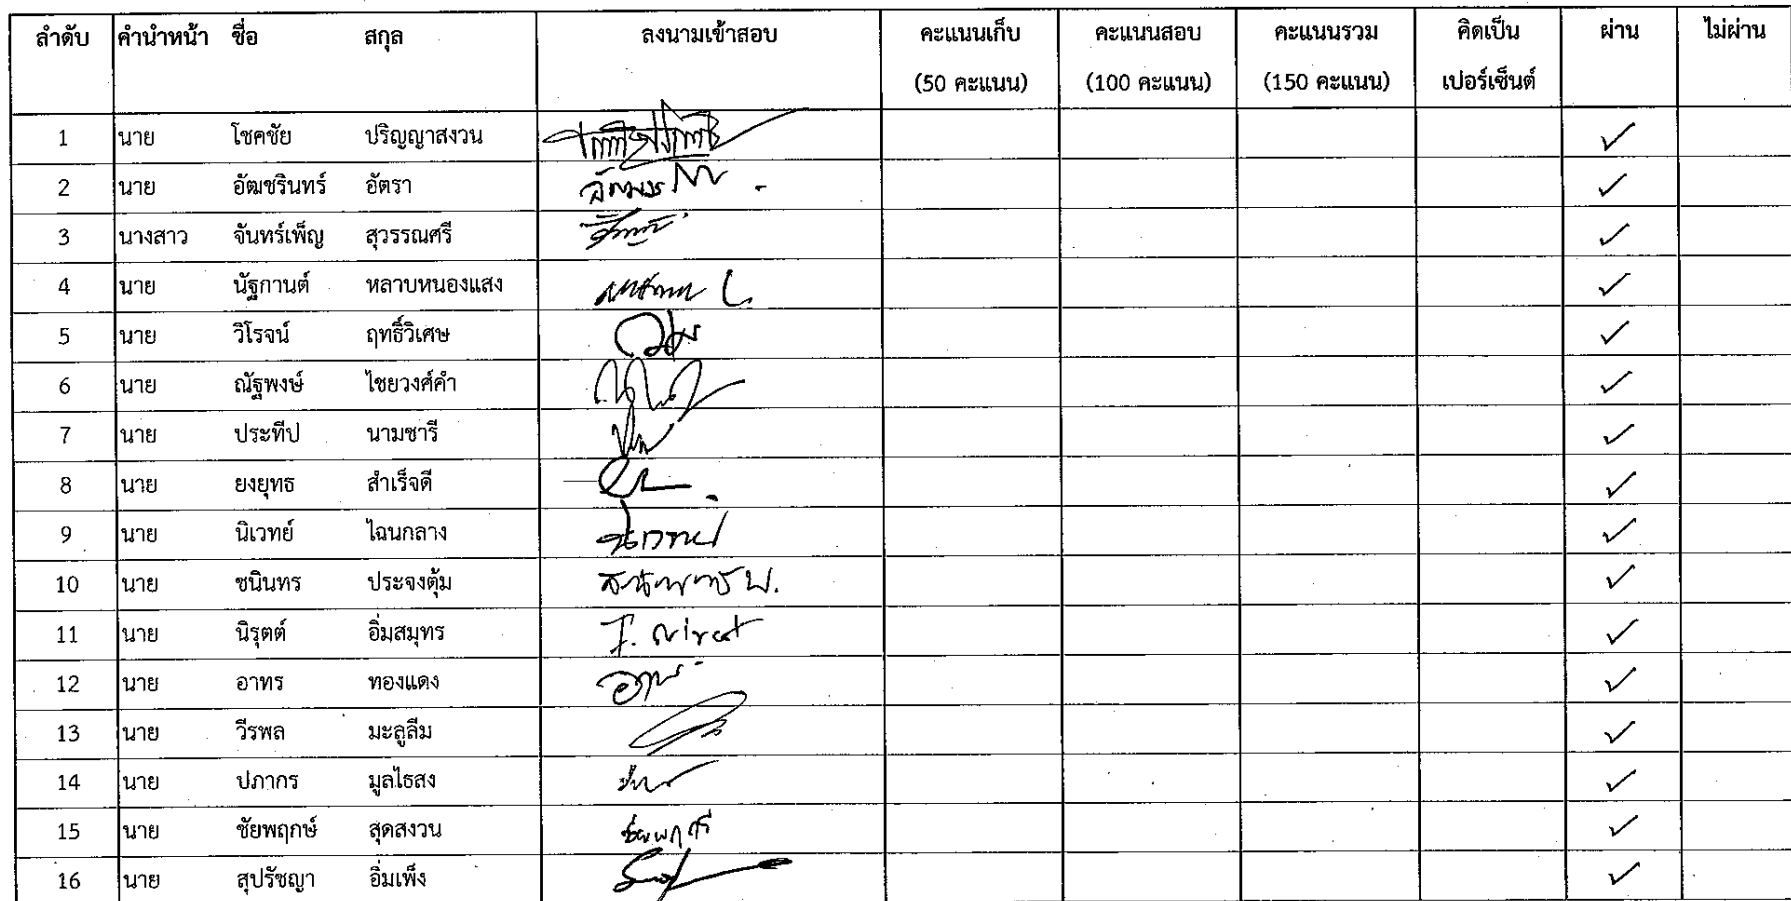 ลำดับ คำนำหน้า ชื่อ สกุล ลงนามเข้าสอบ คะแนนเก็บ คะแนนสอบ คะแนนรวม คิดเป็น ผ่าน ไม่ผ่าน
(50 คะแนน) (100 คะแนน) (150 คะแนน) เปอร์เซ็นต์
1 นาย โชคชัย ปริญญาสงวน ✓
2 นาย อัฒชรินทร์ อัตรา ✓
3 นางสาว จันทร์เพ็ญ สุวรรณศรี ✓
4 นาย นัฐกานต์ หลาบหนองแสง ✓
5 นาย วิโรจน์ ฤทธิ์วิเศษ ✓
6 นาย ณัฐพงษ์ ไชยวงศ์คำ ✓
7 นาย ประทีป นามชารี ✓
8 นาย ยงยุทธ สำเร็จดี ✓
9 นาย นิเวทย์ ไฉนกลาง ✓
10 นาย ชนินทร ประจงตุ้ม ✓
11 นาย นิรุตต์ อิ่มสมุทร ✓
12 นาย อาทร ทองแดง อาทร ✓
13 นาย วีรพล มะลูลีม ✓
14 นาย ปภากร มูลไธสง ✓
15 นาย ชัยพฤกษ์ สุดสงวน ✓
16 นาย สุปรัชญา อิ่มเพ็ง ✓